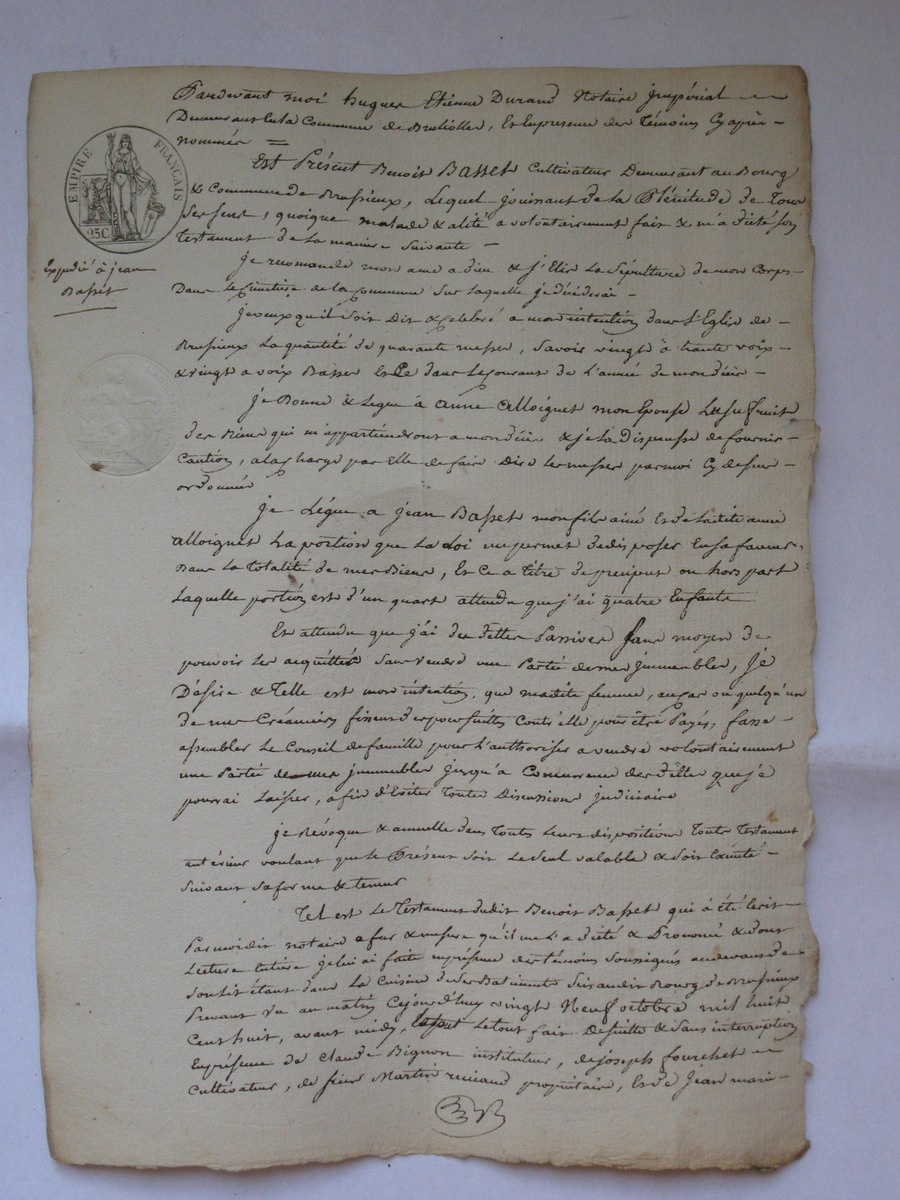 Pardevant moi hugues Etienne Durand Notaire jmpérial
Demeurant En la Commune de Brulliolles, Et En presence des Témoins Cy après
nommés =
Est Présent Benoit Basset Cultivateur Demeurant au Bourg
& Commune de Brussieux, Lequel jouissant de la Plénitude de tous
Ses Sens, quoique malade & alité a volontairement fait & m'a dicté son
testament de la maniere Suivante -
EMPIRE FRANÇAIS
25C
Expédié à jean
Basset
je recomande mon ame a dieu & j'Elis La Sépulture de mon Corps
Dans Le Cimetiere de la Commune Sur Laquelle je décéderai -
je veux qu'il soit Dit & Celebré a mon intention dans L'Eglise de -
Brussieux La quantité de quarante messes, Savoir vingt à haute voix -
& vingt a voix Basses Et Ce dans Le Courant de L'année de mon décès -
je Donne & Legue à anne alloignet mon Epouse L'usufruit
des Biens qui m'appartiendront a mon décès & je la dispense de fournir
Caution, a la charge par Elle de faire Dire Les messes par moi Cy dessus -
ordonnées
je Légue a jean Basset mon fils ainé Et de Ladite anne
alloignet La portion que La Loi me permet de disposer En sa faveur,
Dans La totalité de mes Biens, Et Ce a titre de preciput ou hors part
Laquelle portion est d'un quart attendu que j'ai quatre Enfants
Et attendu que j'ai des dettes Passives sans moyen de
pouvoir Les acquitter Sans vendre une Partie de mes jmmeubles, je
Désire & Telle est mon intention, que madite femme, au cas ou quelqu'un
de mes Créanciers fissent des poursuittes Contr'elle pour être Payés, fasse -
assembler Le Conseil de famille pour L'authoriser a vendre volontairement
une Partie de mes jmmeubles jusqu'a Concurrence des dettes que je
pourrai Laisser, afin d'Eviter Toutes Discussions judiciaire
je Révoque & annulle dans Toutes Leurs dispositions Touts Testament
antérieur voulant que Le Présent Soit Le Seul valable & Soit Exécuté -
Suivant Sa forme & teneur
Tel est Le Testament dudit Benoit Basset qui à été Ecrit -
Par moi dit notaire a fur & mesure qu'il me L'a dicté & Prononcé & dont
Lecture Entiere je lui ai faite En présence des temoins Soussignés au devant de
Son lit étant dans La Cuisine de Ses Batiments Sis audit Bourg de Brussieux
Prenant au matin Cejourd'huy vingt Neuf octobre mil huit
Cent huit, avant midy, Le tout fait De suitte & Sans interruption
En présence de Claude Bignon instituteur, de joseph fourchet
Cultivateur, de sieur Martin propriétaire, Et de Jean marie -